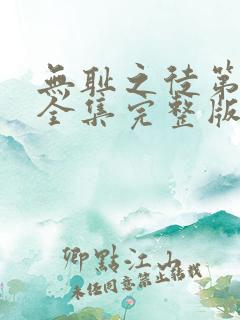 無耻之徒第
全集完整版
卿點江山
未经同意禁止转载